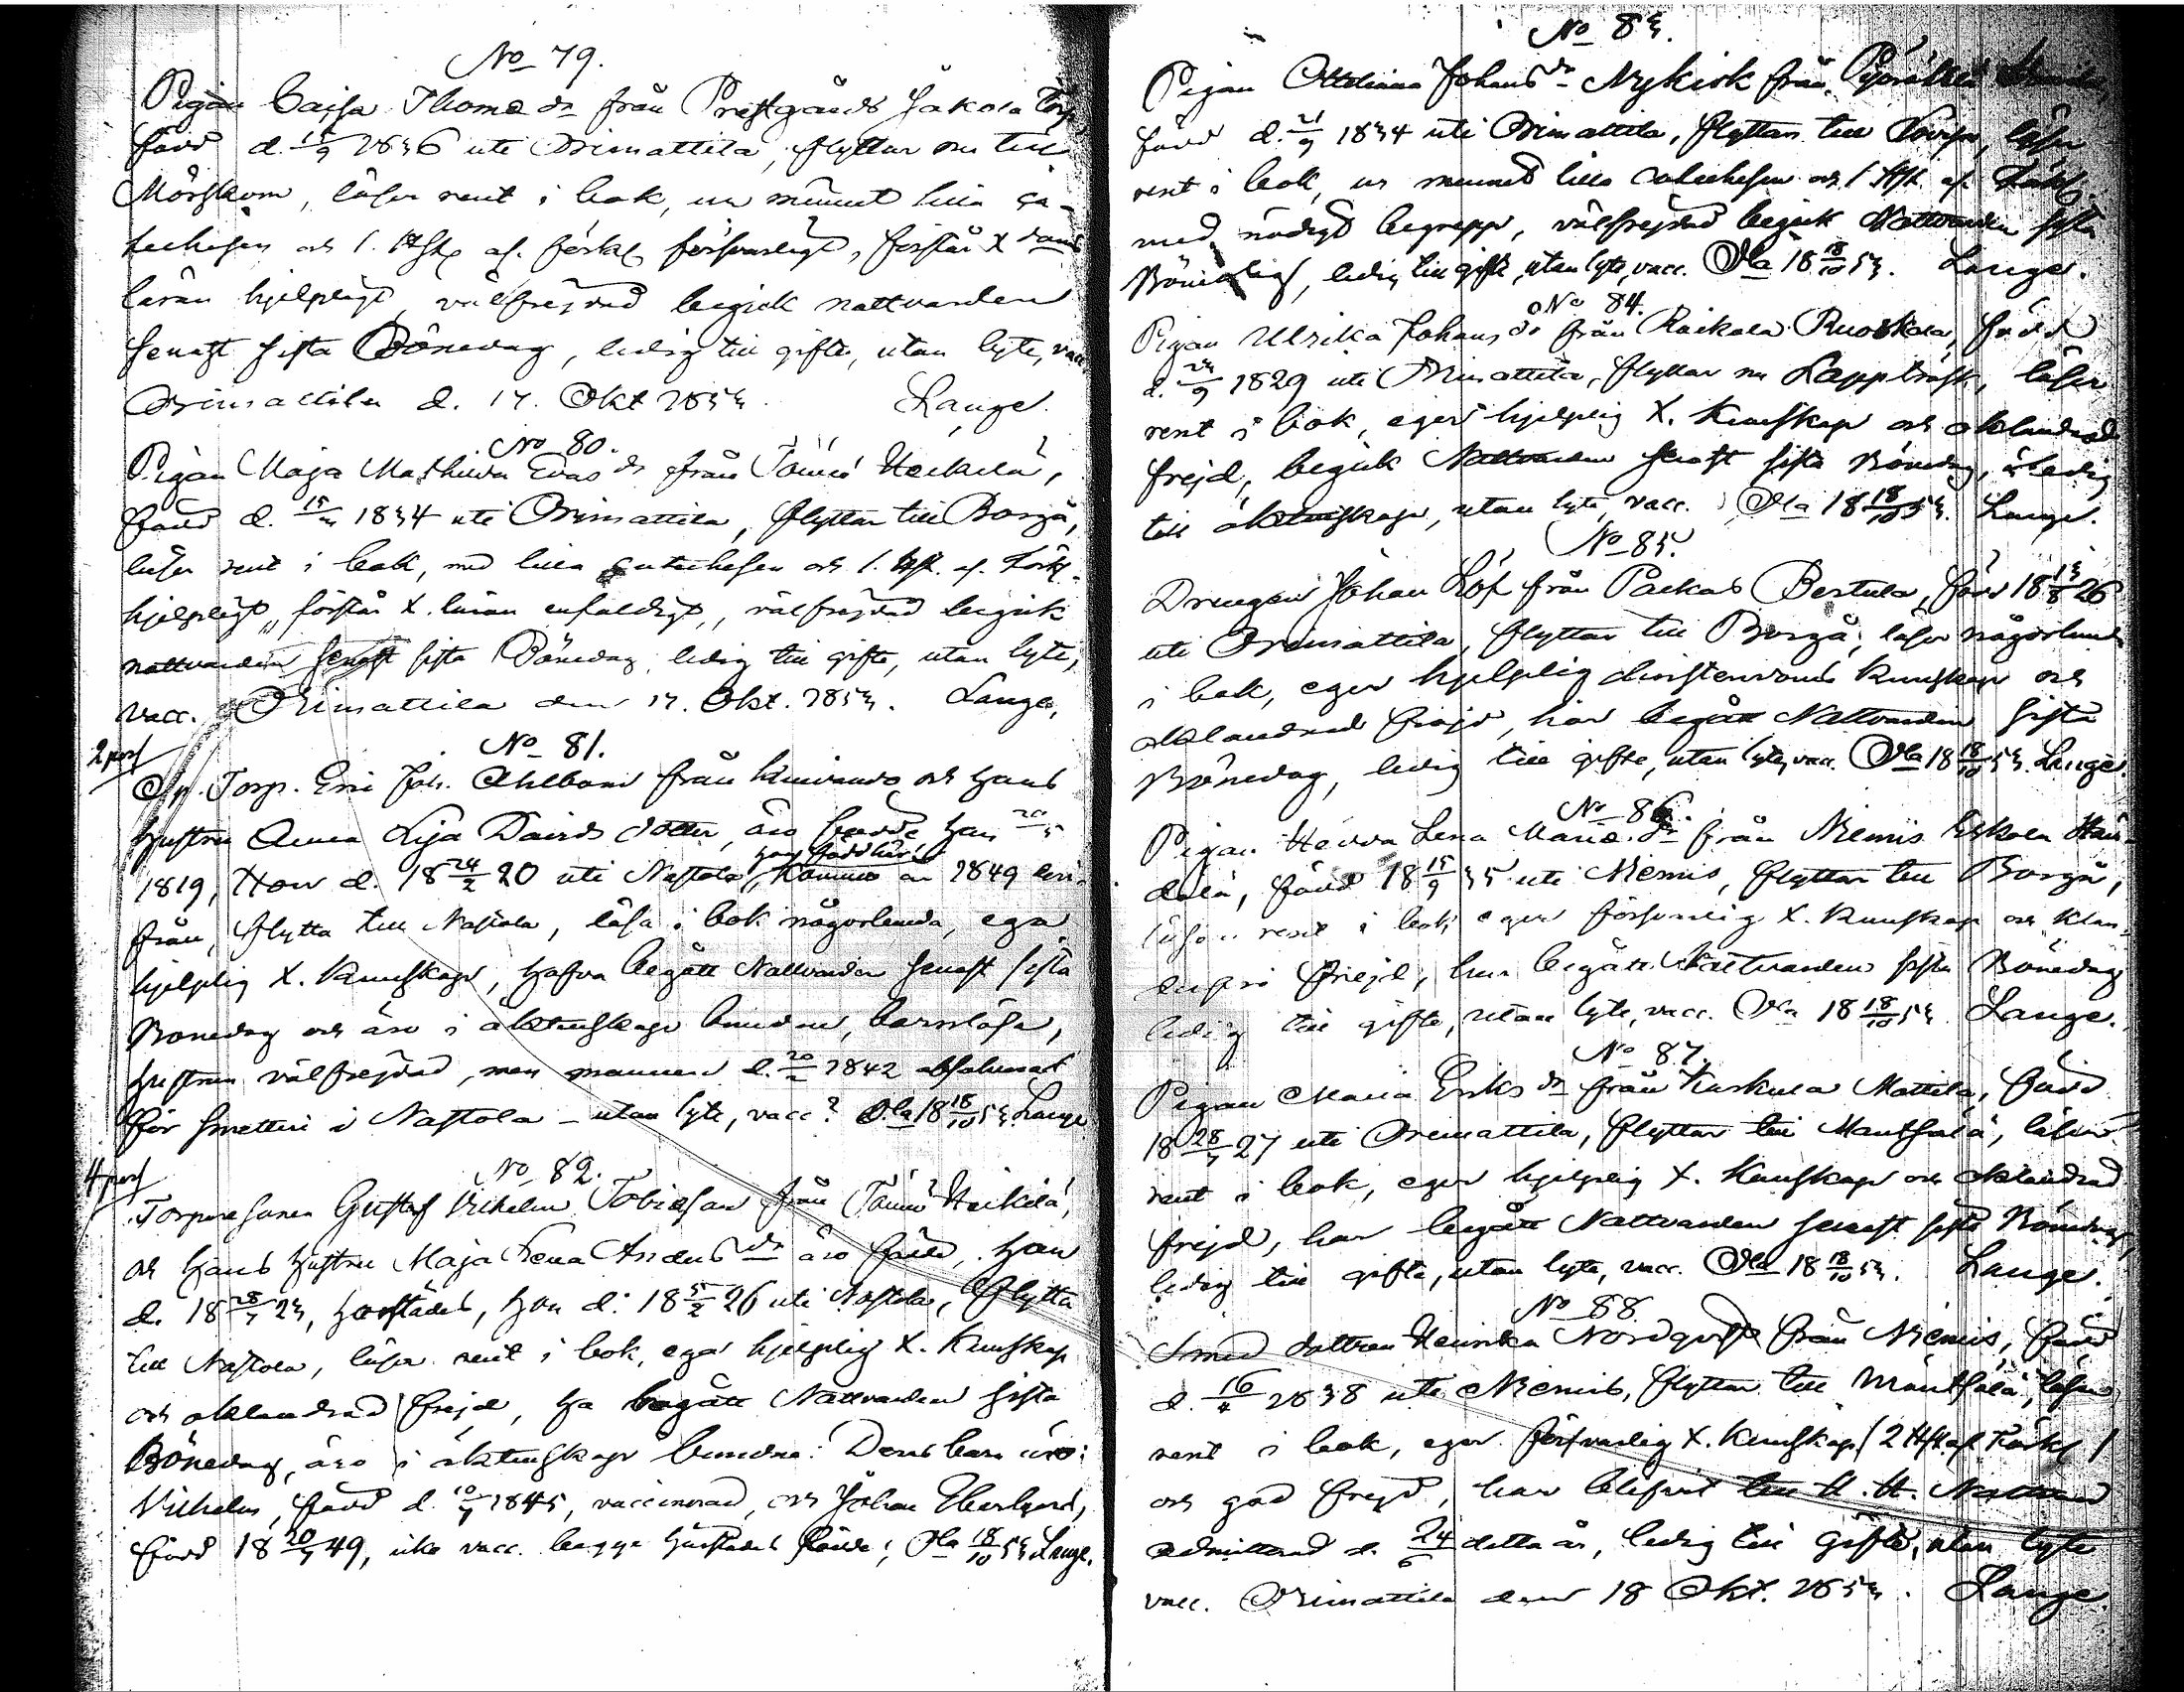 No 79.
Pigan Caisa Thomæ dr från Prestgårds Jakola Torp
född d. 15/9 1836 uti Orimattila, flyttar nu till
Mörskom, läser rent i bok, ur minnet lilla ca-
techesen och 1. Hst af förkl försvarligt, förstår X doms
läran hjelpligt, välfrejdad begick nattvarden
senast sista Bönedag, ledig till gifte, utan lyte, vacc
Orimattila d. 17. Okt 1853. Lange.
No 80.
Pigan Maja Mathilda Evas dr från Tönnö Heikkilä,
född d. 15/3 1834 uti Orimattila, flyttar till Borgå,
läser rent i bok, med lilla catechesen och 1. Hst. af. Förkl.
hjelpligt, förstår X. läran enfaldigt, välfrejdad begick
nattvarden senast sista Bönedag, ledig till gifte, utan lyte,
vacc. Orimattila den 17. Okt. 1853. Lange,
2 pers
No 81.
Torp. Eric Joh. Ahlbom från Kuivando och hans
hustru Anna Lisa Davids dotter, äro födde han 20/5
1819, Hon d. 18 24/2 20 uti Nastola, komne år 1849 der-
från, flytta till Nastola, läsa i bok någorlunda, ega
hjelplig X. kunskap, hafva begått Nattvarden senast sista
Bönedag och äro i äktenskap bundne, barnlösa,
hustrun välfrejdad, men mannen d. 20/2 1842 absolverad
för snatteri i Nastola - utan lyte, vacc? Ola 18 18/10 53. Lange
4 pers
No 82.
Torparesonen Gustaf Vilhelm Tobiesson från Tönnö Heikkilä,
och hans hustru Maja Lena Anders dr äro född, han
d. 18 28/7 23, härstädes, hon d. 18 5/2 26 uti Nastola, flytta
till Nastola, läsa rent i bok, ega hjelplig X. Kunskap
och oklandrad frejd, ha begått Nattvarden sista
Bönedag, äro i äktenskap bundne: Deras barn äro:
Vilhelm, född d. 10/7 1845, vaccinerad, och Johan Eberhard,
född 18 20/7 49, icke vacc. begge härstädes födde; Ola 18/10 53 Lange.
No 83.
Pigan Ottiliana Johans dr Nykisk från
född d. 21/9 1834 uti Orimattila, flyttar till Lovisa, läser
rent i bok, ur minnet lilla catechesen och 1 Hst. af Förkl
med nödigt begrepp, välfrejdad begick Nattvarden sista
Bönedag, ledig till gifte, utan lyte, vacc. Ola 18 18/10 53. Lange.
No 84.
Pigan Ulrika Johans dr från Raikala Ruoskala, född
d. 23/9 1829 uti Orimattila, flyttar nu Lappträsk, läser
rent i bok, eger hjelplig X. Kunskap och oklandrad
frejd, begick Nattvarden senast sista Bönedag, är ledig
till äktenskap, utan lyte, vacc. Ola 18 18/10 53. Lange.
No 85.
Drengen Johan Löf från Packas Bertula, född 18 13/8 26
uti Orimattila, flyttar till Borgå, läser någorlunda
i bok, eger hjelplig christendoms kunskap och
oklandrad frejd, har begått Nattvarden sista
Bönedag, ledig till gifte, utan lyte, vacc. Ola 18 18/10 53. Lange.
No 86.
Pigan Hedda Lena Mariæ dr från Niemis Eskola Hau-
dala, född 18 15/9 35 uti Niemis, flyttar till Borgå,
läser rent i bok eger försvarlig X. kunskap och klan-
derfri frejd, har begått Nattvarden sista Bönedag
ledig till gifte, utan lyte, vacc. Ola 18 18/10 53 Lange.
No 87.
Pigan Maria Eriks dr från Kuskula Mattila, född
18 28/7 27 uti Orimattila, flyttar till Mäntsälä, läser
rent i bok, eger hjelplig X. Kunskap och oklandrad
frejd, har begått Nattvarden senast sista Bönedag,
ledig till gifte, utan lyte, vacc. Ola 18 18/10 53. Lange.
No 88.
Smed dottren Henrika Nordqvist från Niemis, född
d. 16/4 1838 uti Niemis, flyttar till Mäntsälä, läser
rent i bok, eger försvarlig X. Kunskap / 2 Hst. af Förkl /
och god frejd, har blifvit till H. H. Nattvard
admitterad d. 24/6 detta år, ledig till gifte, utan lyte
vacc. Orimattila den 18 Okt. 1853. Lange.